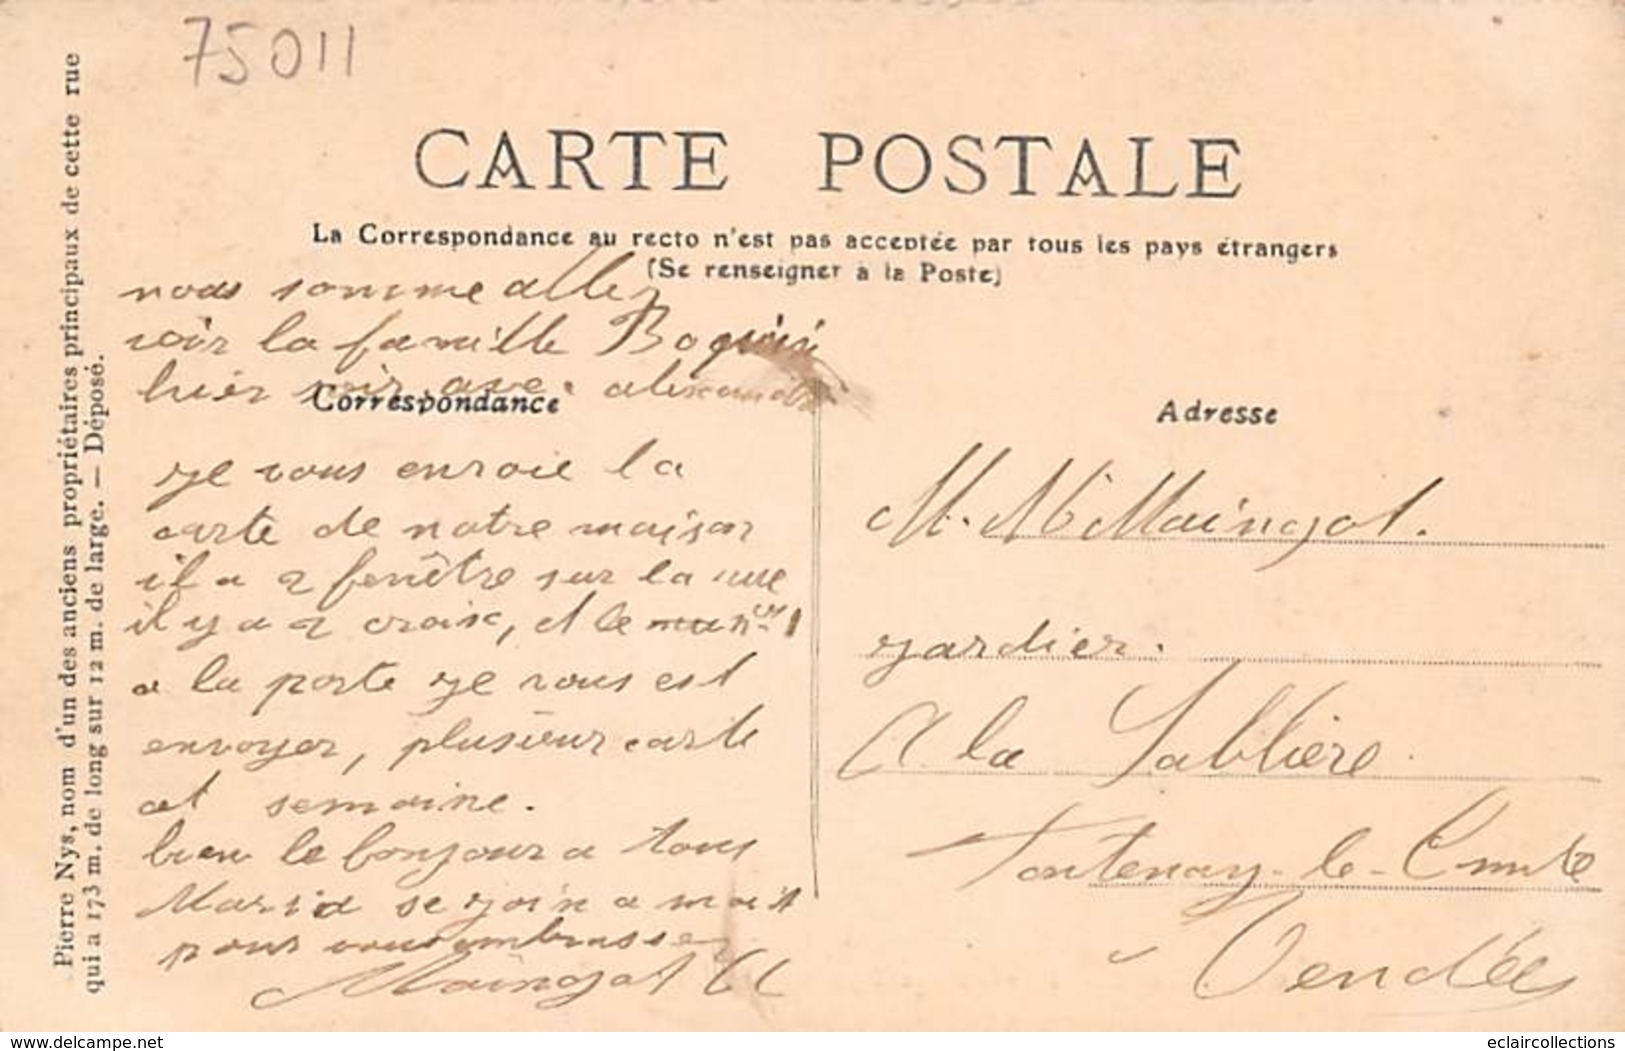 75011
Pierre Nys, nom d'un des anciens propriétaires principaux de cette rue
qui a 173 m. de long sur 12 m. de large. — Déposé.
CARTE POSTALE
La Correspondance au recto n'est pas acceptée par tous les pays étrangers
(Se renseigner à la Poste)
nous somme aller
voir la famille Boquin
hier soir avec alexandre
Correspondance
Adresse
je vous envoie la
carte de notre maison
il a 2 fenêtre sur la rue
il y a 2 croix, et le n° 1
a la porte je vous est
envoyer, plusieur carte
cet semaine.
bien le bonjour a tous
Maria se join a moi
pour vous embrasser
Maingot
M. Maingot.
jardier.
A la Sablière
Fontenay-le-Comte
Vendée
www.delcampe.net
eclaircollections